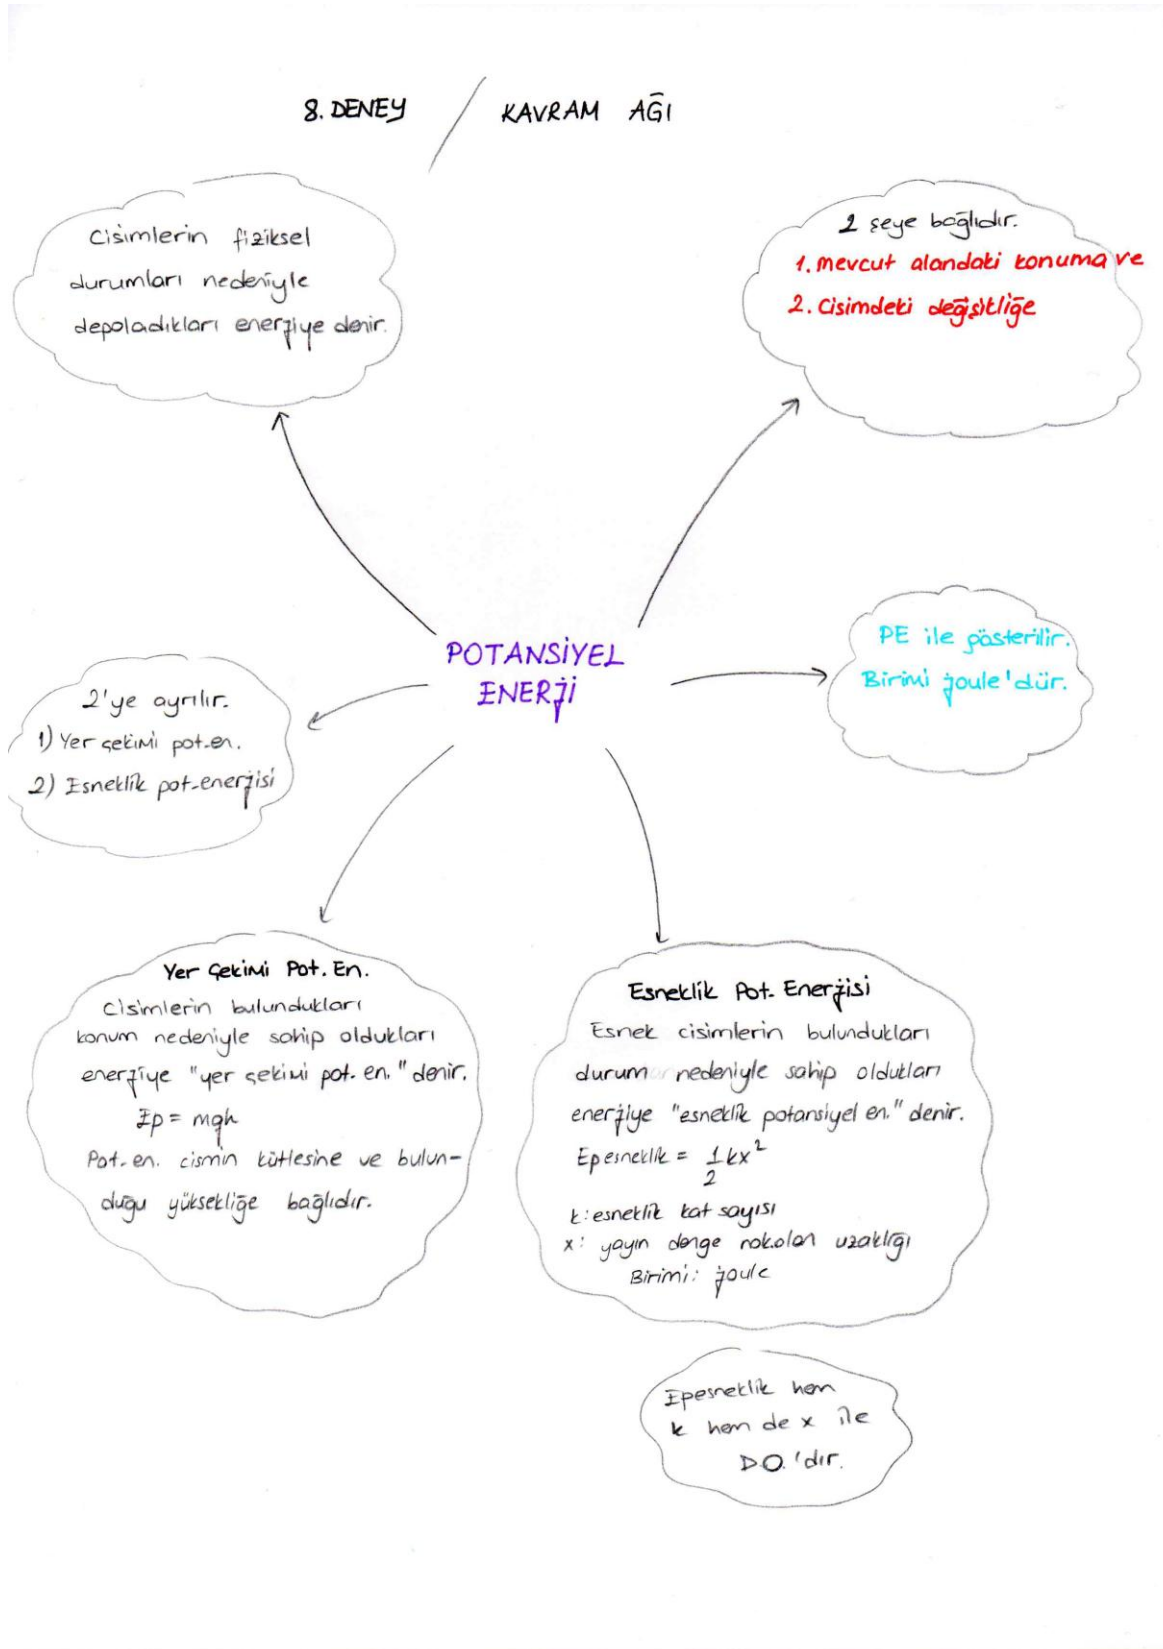 8. DENEY / KAVRAM AĞI
Cisimlerin fiziksel
durumları nedeniyle
depoladıkları enerjiye denir.
2 şeye bağlıdır.
1. mevcut alandaki konuma ve
2. Cisimdeki değişikliğe
POTANSİYEL
ENERJİ
PE ile gösterilir.
Birimi joule'dür.
2'ye ayrılır.
1) Yer çekimi pot.en.
2) Esneklik pot.enerjisi
Yer Çekimi Pot. En.
Cisimlerin bulundukları
konum nedeniyle sahip oldukları
enerjiye "yer çekimi pot. en." denir.
Ep = mgh
Pot. en. cismin kütlesine ve bulun-
duğu yüksekliğe bağlıdır.
Esneklik Pot. Enerjisi
Esnek cisimlerin bulundukları
durum nedeniyle sahip oldukları
enerjiye "esneklik potansiyel en." denir.
Epesneklik = 1/2 kx²
k: esneklik kat sayısı
x: yayın denge nok.olan uzaklığı
Birimi: joule
Epesneklik hem
k hem de x ile
D.O.'dır.